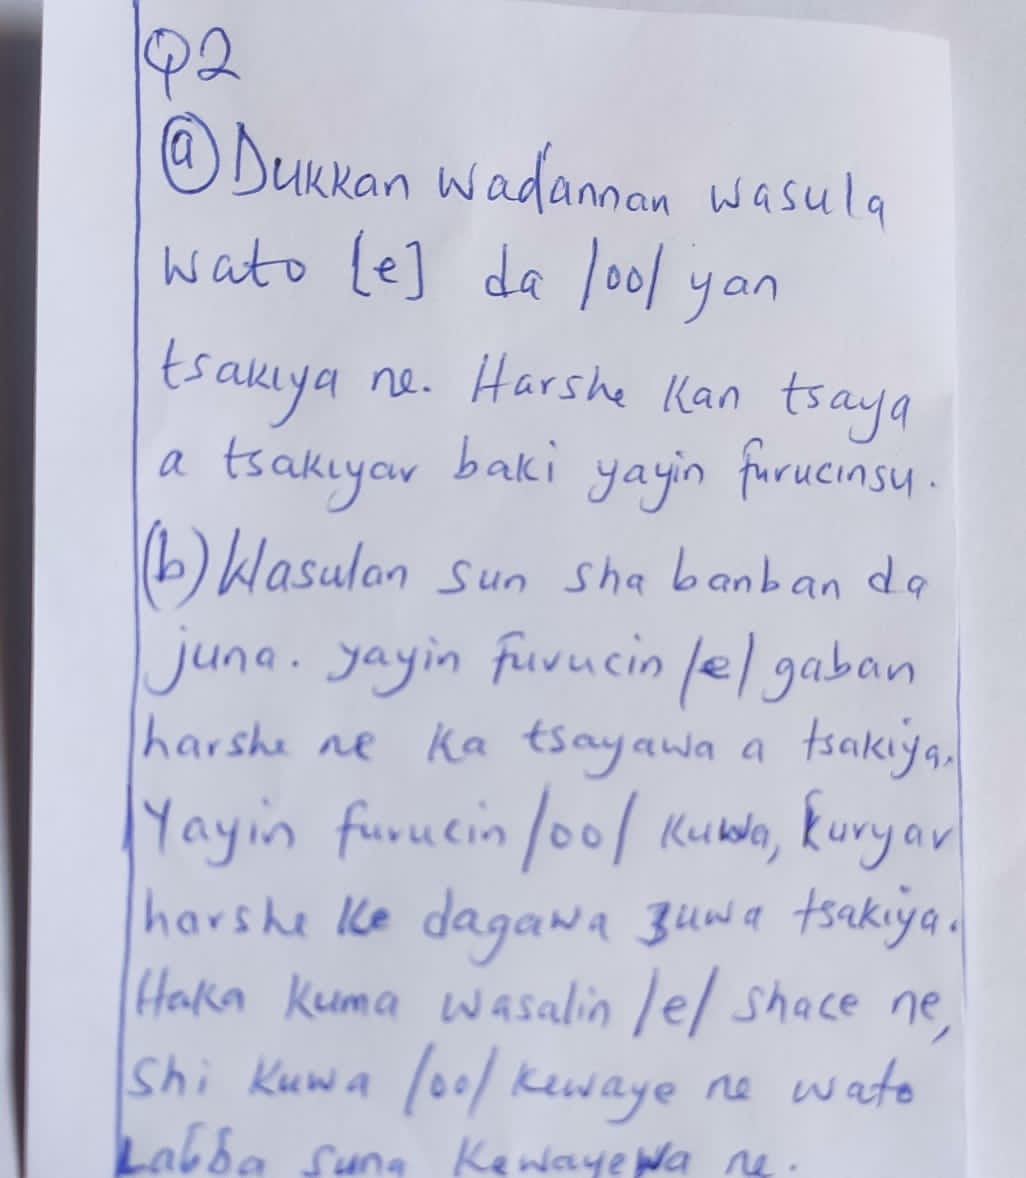 Q2
(a) Dukkan waɗannan wasula
wato [e] da /oo/ yan
tsakiya ne. Harshe kan tsaya
a tsakiyar baki yayin furucinsu.
(b) Wasulan sun sha banban da
juna. yayin furucin /e/ gaban
harshe ne ka tsayawa a tsakiya.
Yayin furucin /oo/ kuwa, ƙuryar
harshe ke dagawa zuwa tsakiya.
Haka kuma wasalin /e/ shace ne,
Shi kuwa /oo/ kewaye ne wato
Laɓɓa suna kewayewa ne.